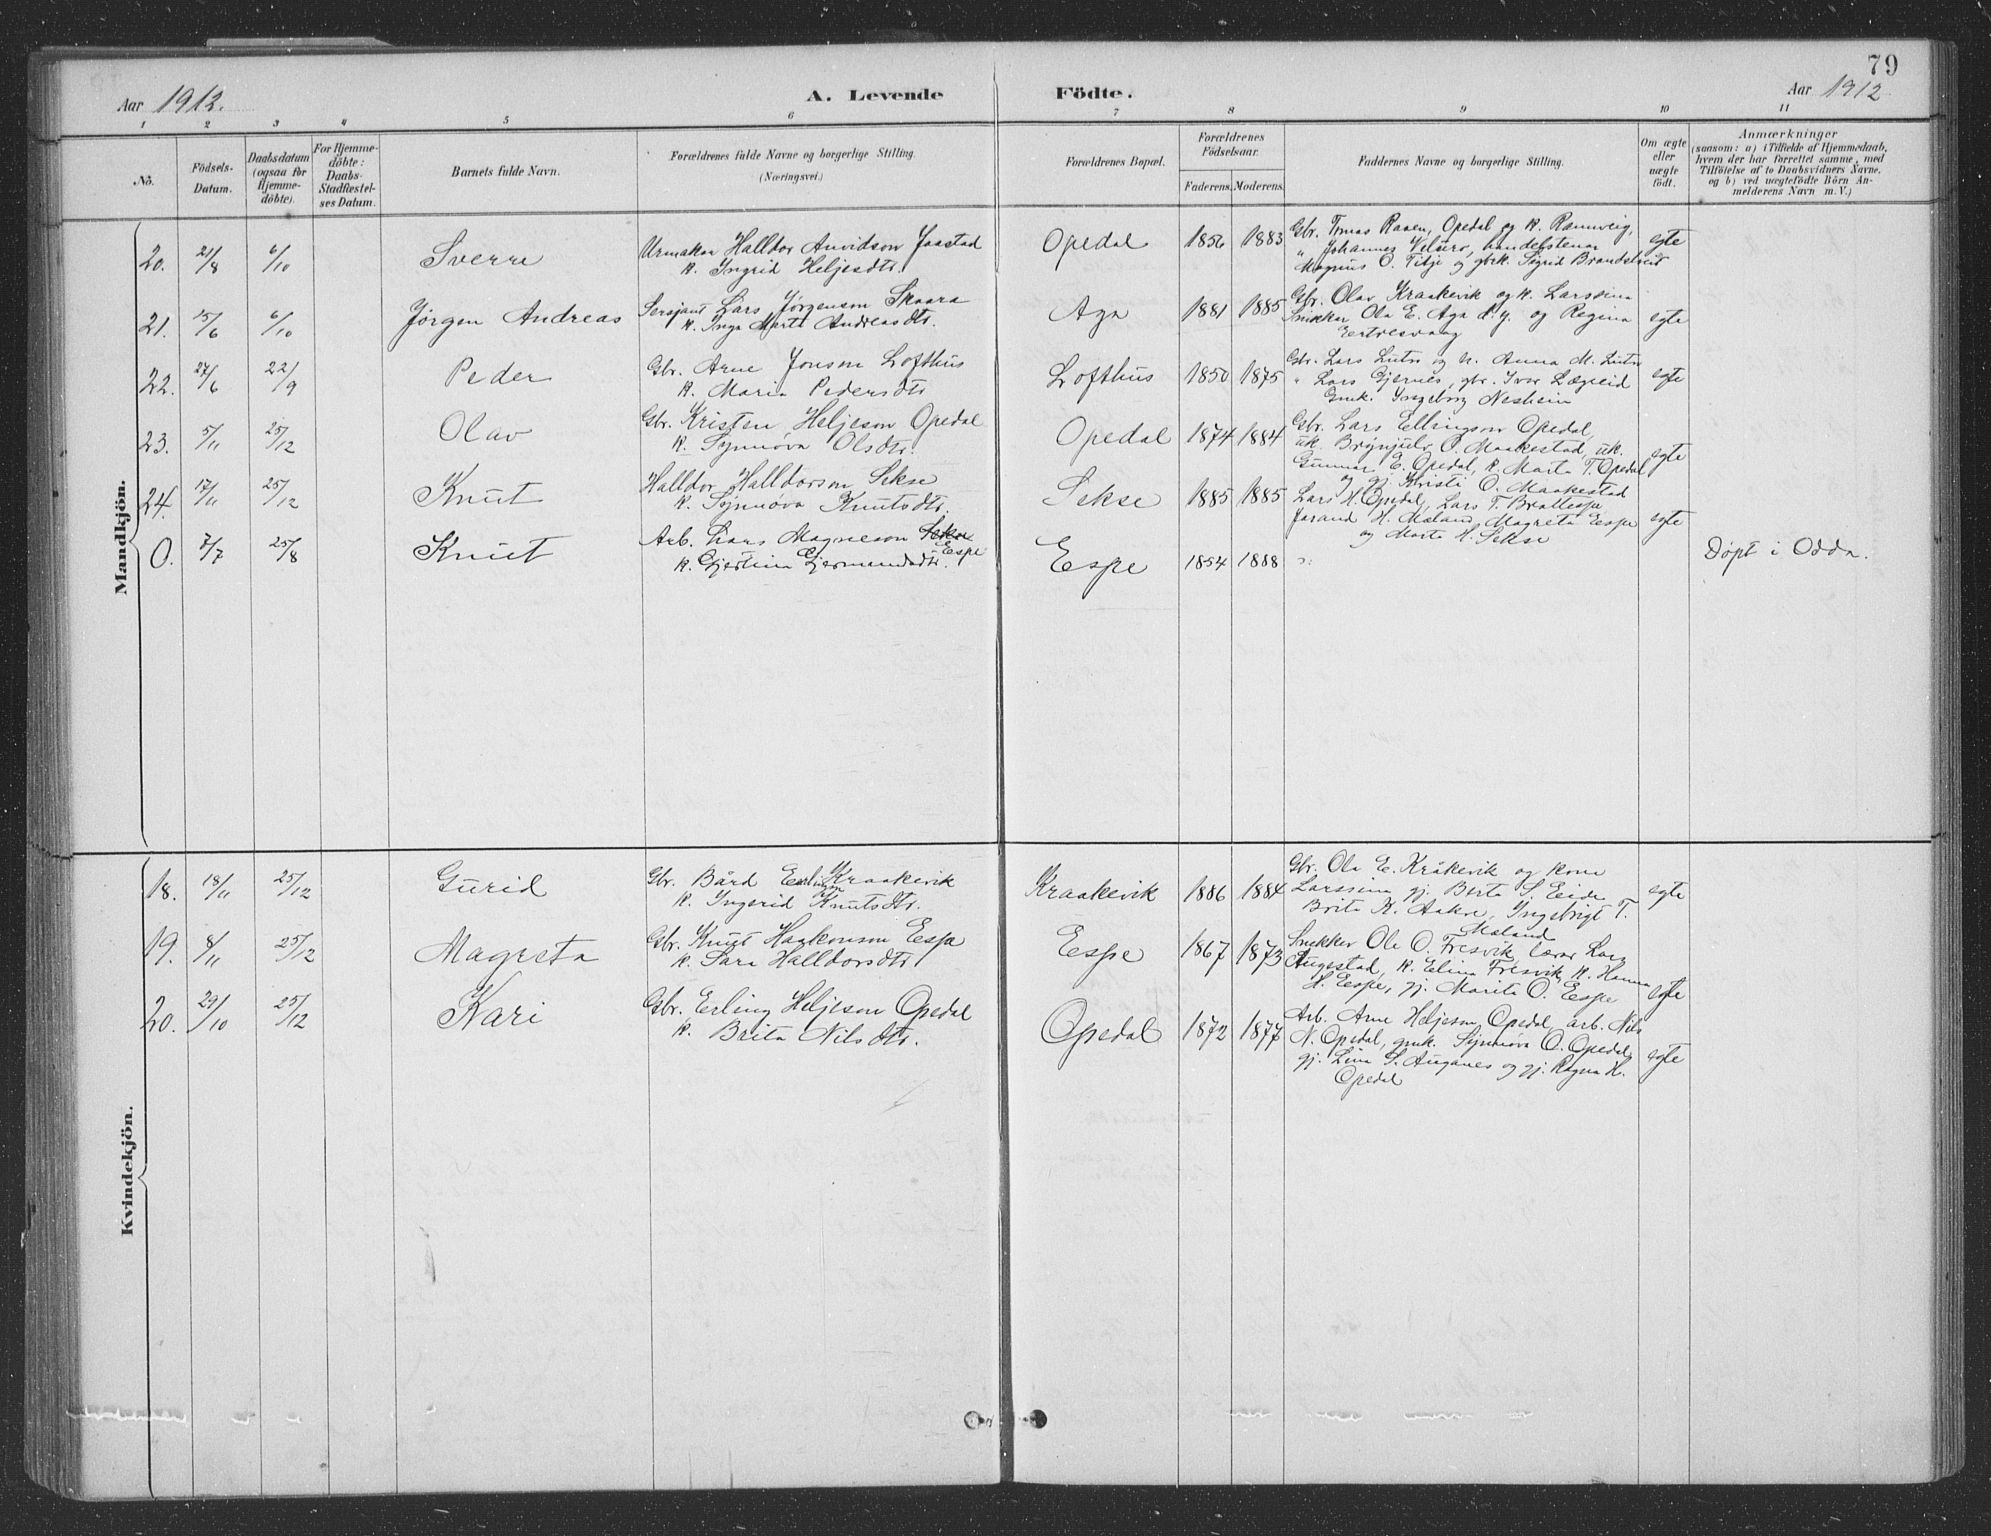 79
Aar 1912.
A. Levende
Födte.
Aar 1912
1 2 3 4 5 6 7 8 9 10 11
No.
Födsels-
Datum.
Daabsdatum
(ogsaa for
Hjemme-
döbte).
For Hjemme-
döbte:
Daabs-
Stadfæstel-
ses Datum.
Barnets fulde Navn.
Forældrenes fulde Navne og borgerlige Stilling.
(Næringsvei.)
Forældrenes Bopæl.
Forældrenes
Födselsaar.
Faderens. Moderens.
Faddernes Navne og borgerlige Stilling.
Om ægte
eller
uægte
födt.
Anmærkninger
(saasom: a) i Tilfælde af Hjemmedaab,
hvem der har forrettet samme, med
Tilföielse af to Daabsvidners Navne,
og b) ved uægtefödte Börn An-
melderens Navn m. V.)
Mandkjön.
20. 21/8 6/10 Sverre
Urmakar Halldor Anvidson Jaastad
k. Ingrid Heljesdtr.
Opedal 1856 1883
Gbr. Raaen, Opedal og k. Rannveig,
" Johannes
Magnus O. og gbrk. Sigrid
egte
21. 15/6 6/10 Jørgen Andreas
Sersjant Lars Jørgenson Skaara
k. Inga Marta Andreasdtr.
Aga 1881 1885
Gbr. Olav Kraakevik og k. Larssina
Snikkar Ola E. Aga d.y. og Regina
egte
22. 27/6 22/9 Peder
Gbr. Arne Jonson Lofthus
k. Maria Pedersdtr
Lofthus 1850 1875
Gbr. Lars Lutro og k. Anna M. Lutro
" Lars Gjernes, gbr. Ivar Lægreid
Gmk. Ingebjørg Nesheim
egte
23. 5/11 25/12 Olav
Gbr. Kristen Heljeson Opedal
k. Synnøva Olsdtr.
Opedal 1874 1884
Gbr. Lars Ellingson Opedal,
uk. Brynjulv O. Maakestad, uk.
Gunnar E. Opedal, k. Marta T. Opedal
og gj. Kristi O. Maakestad
egte
24. 17/11 25/12 Knut
Halldor Halldorson Sekse
k. Synnøva Knutsdtr.
Sekse 1885 1885
Lars H. Opedal, Lars T. Brattespe
Jarand H. Mæland, Magreta Espe
og Marta H. Sekse
egte
0. 7/7 25/8 Knut
Arb. Lars Magneson Sekse
Espe
k. Gjertina Gjermundsdtr.
Espe 1854 1888
Døpt i Odda.
Kvindekjön.
18. 18/11 25/12 Gurid
Gbr. Bård Erlingson Kraakevik
k. Ingerid Knutsdtr.
Kraakevik 1886 1884
Gbr. Ola E. Kråkevik og kona
Larssina gj. Berta S. Eide
Brita K. Aakre, Ingebrigt T.
Mæland
egte
19. 8/11 25/12 Magreta
Gbr. Knut Haakonson Espe
k. Sara Halldorsdtr
Espe 1867 1873
Snekker Ole O. Fresvik, lærar Lars
Augestad, k. Elina Fresvik, k. Hanna
H. Espe, gj. Marita O. Espe
egte
20. 29/10 25/12 Kari
Gbr. Erling Heljeson Opedal
k. Brita Nilsdtr.
Opedal 1872 1877
Arb. Arne Heljeson Opedal, arb. Nils
N. Opedal, gmk. Synnøva O. Opedal,
gj. Lina S. Auganes og gj. Ragna H.
Opedal
egte